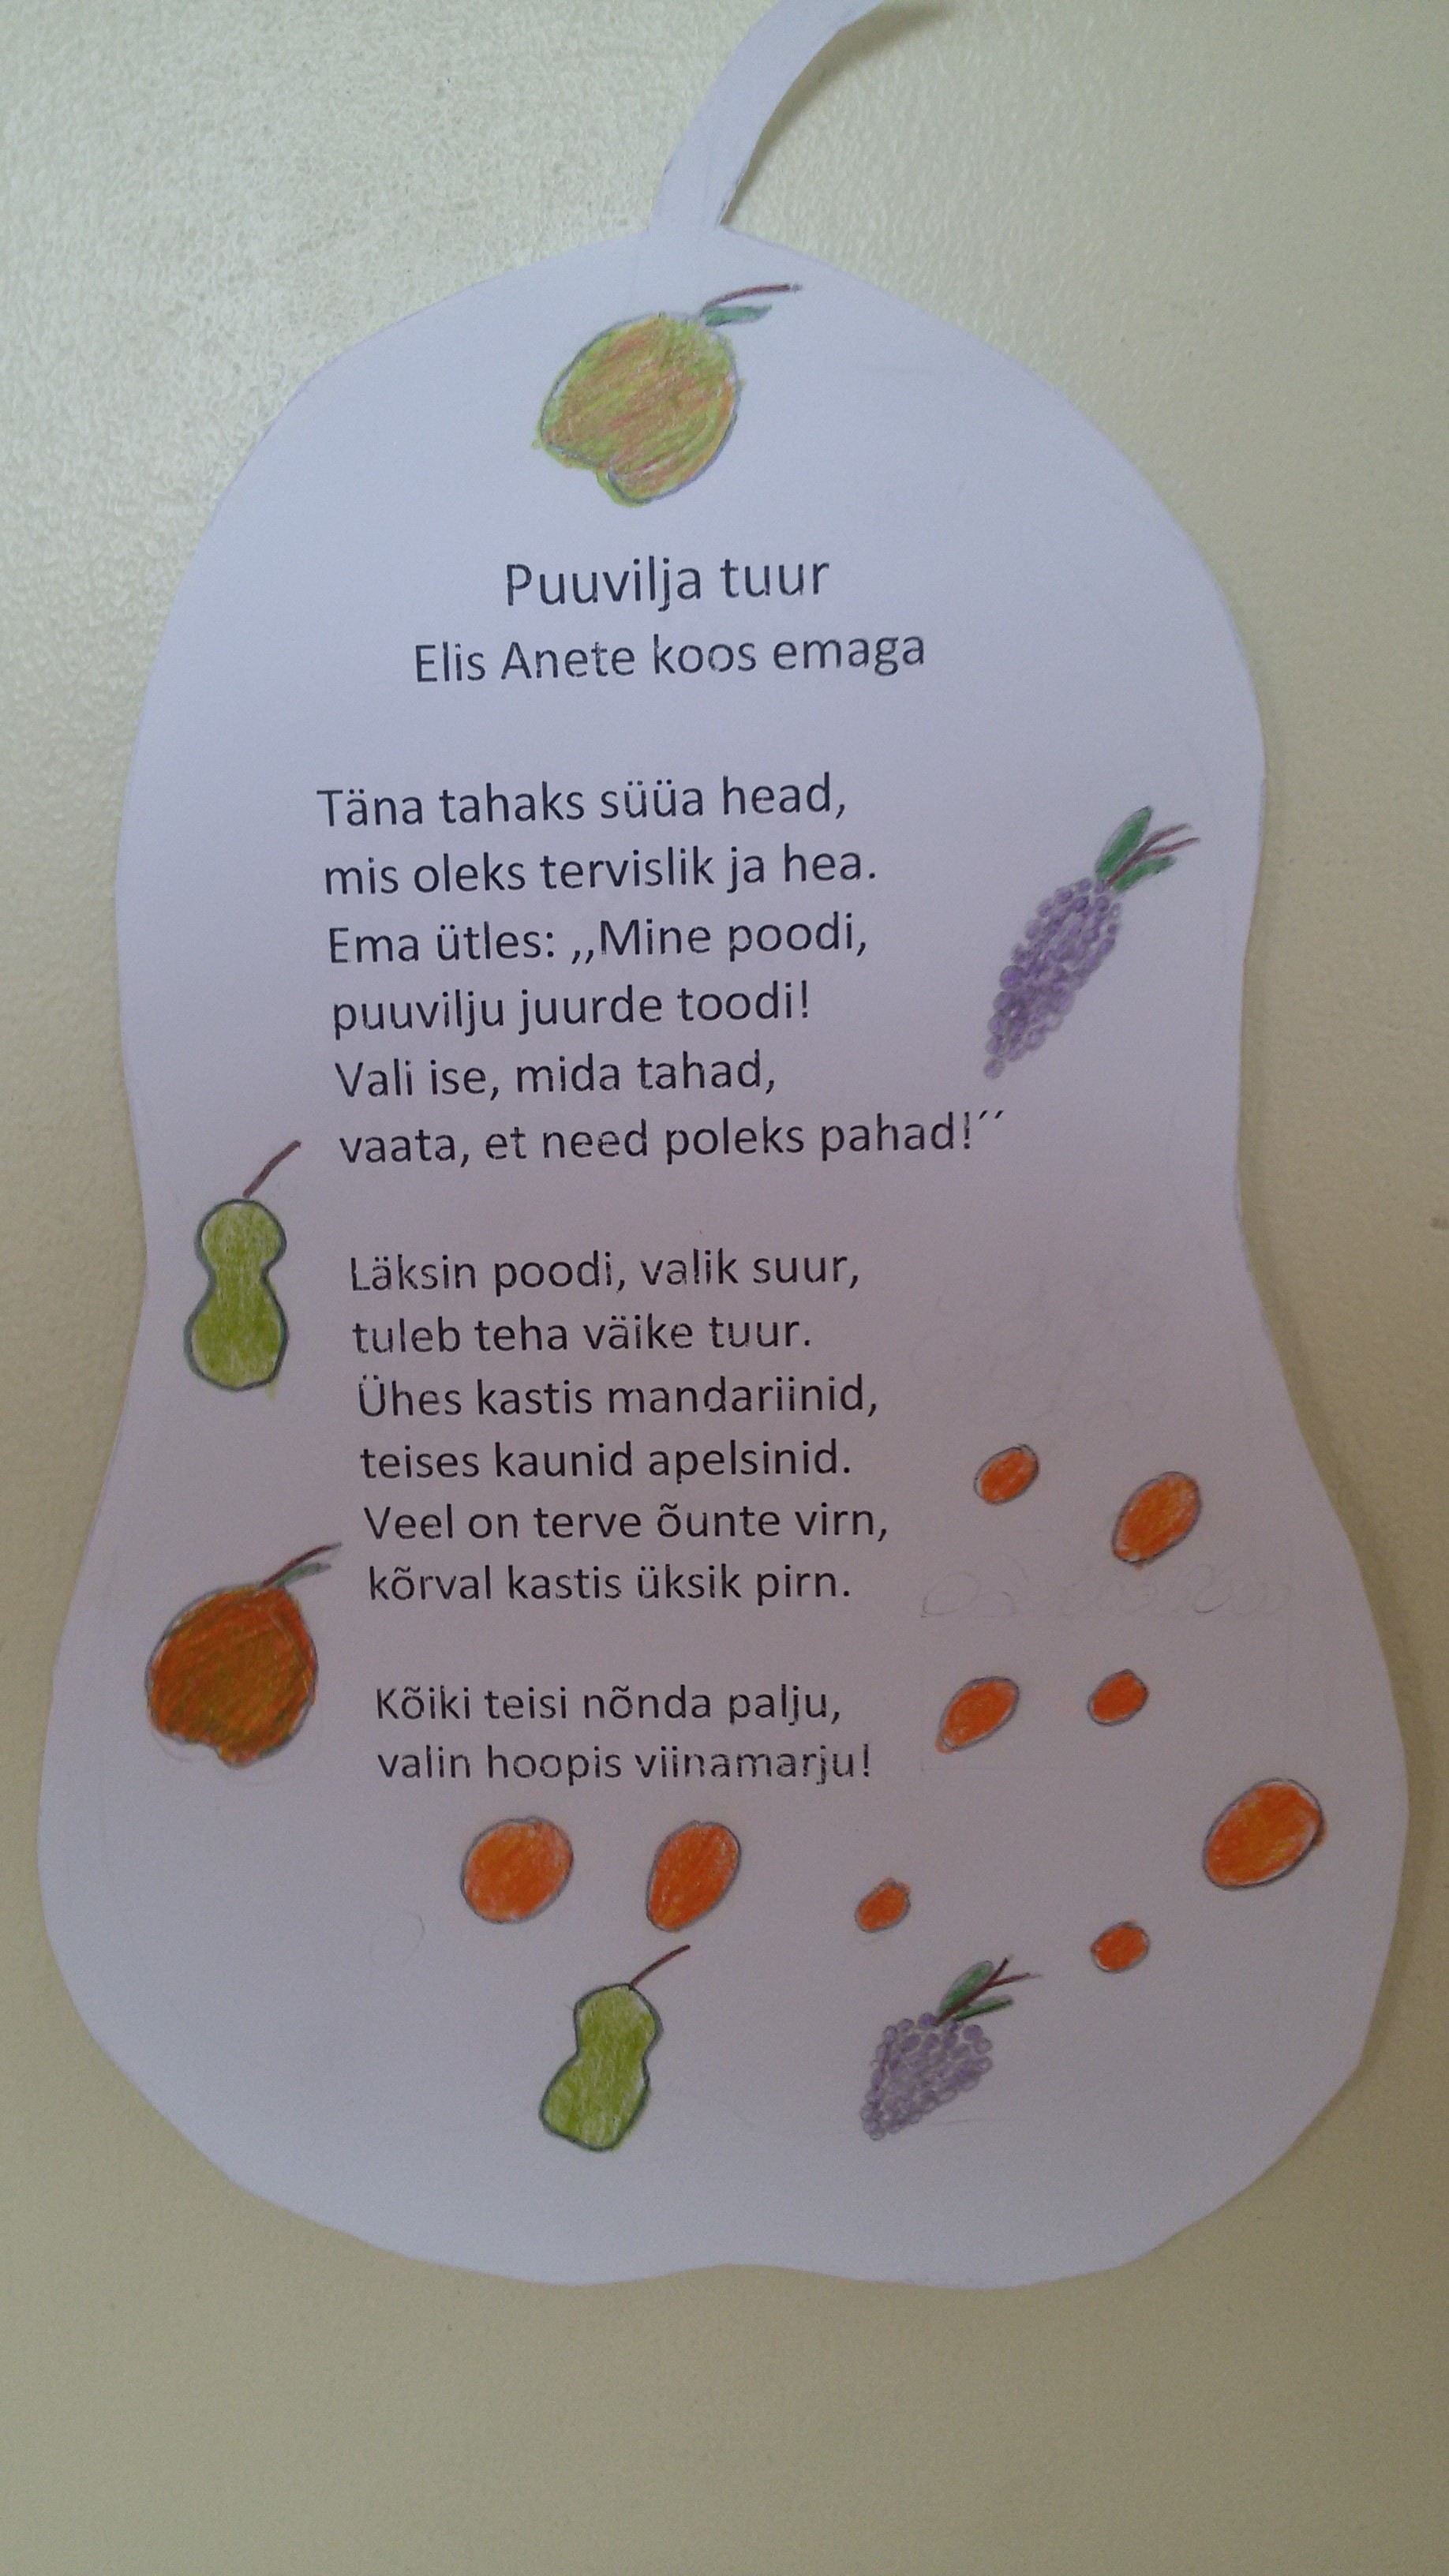 Puuvilja tuur
Elis Anete koos emaga
Täna tahaks süüa head,
mis oleks tervislik ja hea.
Ema ütles: ,,Mine poodi,
puuvilju juurde toodi!
Vali ise, mida tahad,
vaata, et need poleks pahad!´´
Läksin poodi, valik suur,
tuleb teha väike tuur.
Ühes kastis mandariinid,
teises kaunid apelsinid.
Veel on terve õunte virn,
kõrval kastis üksik pirn.
Kõiki teisi nõnda palju,
valin hoopis viinamarju!